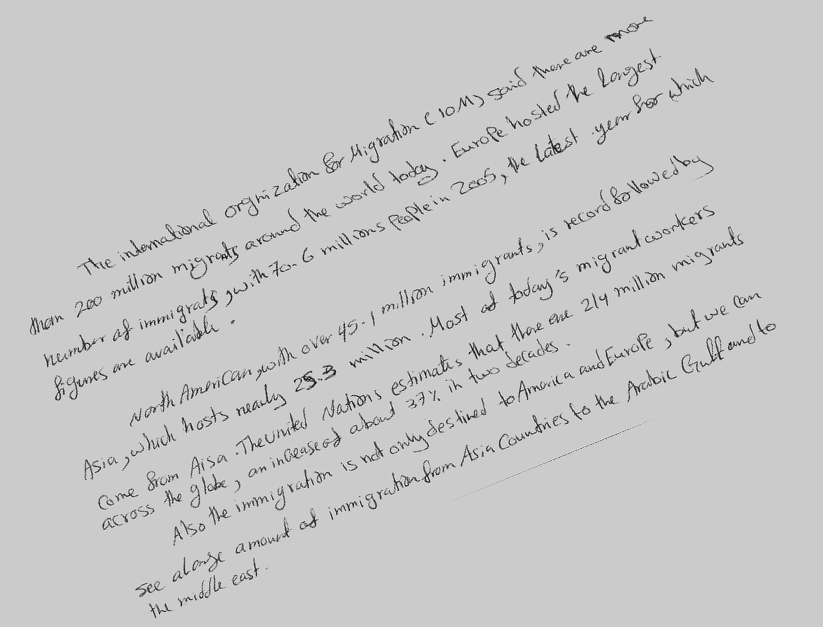 The international orgnization for Migration (IOM) said there are more
than 200 million migrants around the world today. Europe hosted the largest
number of immigrats, with 70.6 millions people in 2005, the latest year for which
figures are available.
North American, with over 45.1 million immigrants, is record followed by
Asia, which hosts nearly 25.3 million. Most of today's migrant workers
come from Aisa. The United Nations estimates that there are 214 million migrants
across the globe, an increase of about 37% in two decades.
Also the immigration is not only destined to America and Europe, but we can
see a large amount of immigration from Asia Countries to the Arabic Gulf and to
the middle east.